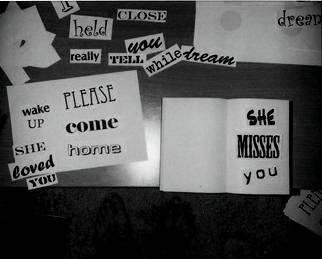 I
held
CLOSE
dream
really
TELL
you
while
dream
wake
UP
PLEASE
come
home
SHE
loved
YOU
SHE
MISSES
you